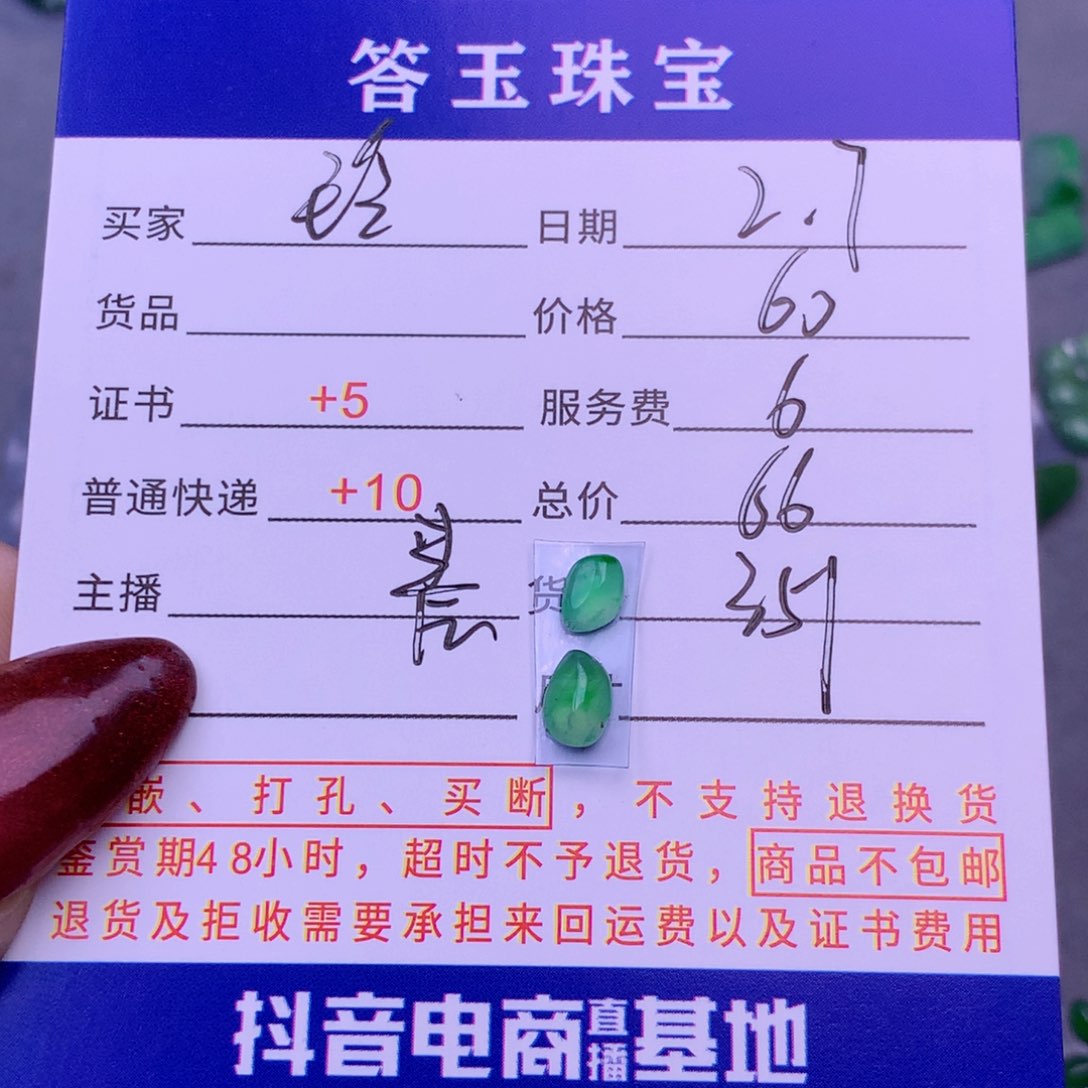 答玉珠宝
买家 日期 2.7
货品 价格 60
证书 +5 服务费 6
普通快递 +10 总价 66
主播 货 351
嵌、打孔、买断，不支持退换货
鉴赏期48小时，超时不予退货，商品不包邮
退货及拒收需要承担来回运费以及证书费用
抖音电商直播基地